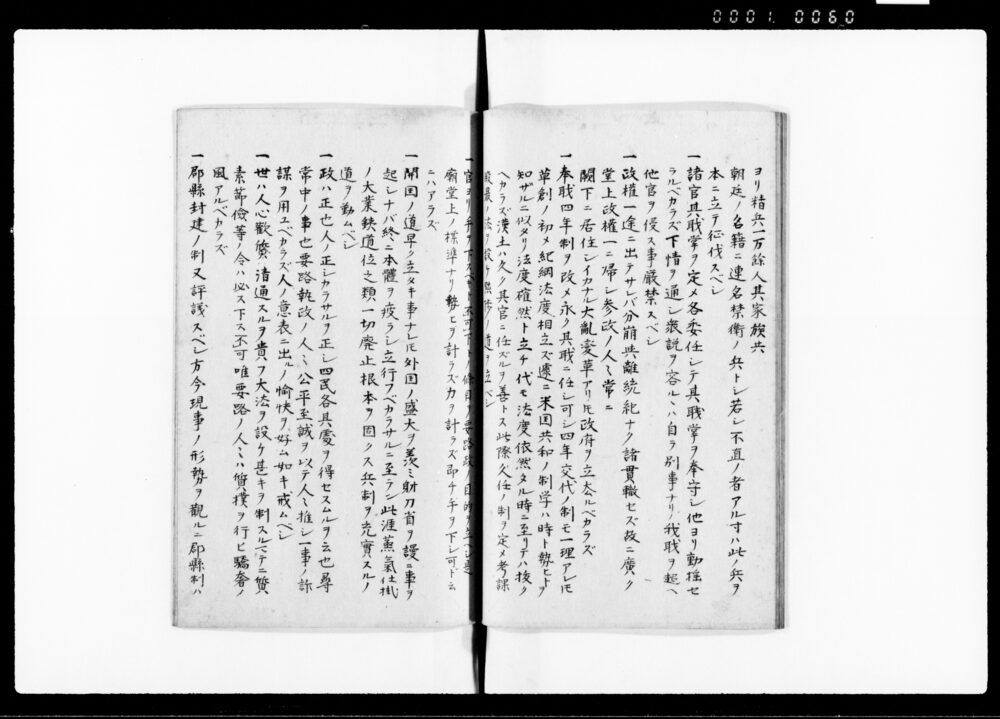 0001.0060
ヨリ精兵一万餘人其家族共
朝廷ノ名籍ニ連名禁衛ノ兵トシ若シ不直ノ者アル寸ハ此ノ兵ヲ
本ニ立テ征伐スベシ
一諸官其職掌ヲ定メ各委任シテ其職掌ヲ奉守シ他ヨリ動揺セ
ラルベカラズ下情ヲ通シ衆説ヲ容ルヽハ自ラ別事ナリ我職ヲ越ヘ
他官ヲ侵ス事厳禁スベシ
一政權一途ニ出テサレバ分崩乖離統紀ナク諸貫徹セズ故ニ廣ク
堂上政權一ニ帰シ参政ノ人々常ニ
闕下ニ居住シイカナル大亂変革アリ𪜈政府ヲ立去ルベカラズ
一奉職四年制ヲ改メ永ク其職ニ任シ可シ四年交代ノ制モ一理アレ𪜈
草創ノ初メ紀綱法度相立ズ遽ニ米国共和ノ制学ハ時ト勢ヒトヲ
知ザルニ似タリ法度確然ト立チ代モ法度依然タル時ニ至リテハ拔ク
ヘカラズ漢土ハ久ク其官ニ任ズルヲ善トス此際久任ノ制ヲ定メ考課
ノ法ヲ設ケ黜陟ノ道ヲ立ベシ
一官ヨリ手ヲ下スベシ不可下トノ條目ヲ要路政ノ目的ヲ立ベシ是
廟堂上ノ標準ナリ勢ヒヲ計ラズ力ヲ計ラズ即チ手ヲ下シ可ト云
ニハアラズ
一開国ノ道早ク立タキ事ナレ𪜈外国ノ盛大ヲ羨ミ財力省ヲ謾ニ事ヲ
起シナバ終ニ本體ヲ疲ラシ立行フベカラサルニ至ラン此涯蒸氣仕掛
ノ大業鉄道位之類一切廃止根本ヲ固クス兵制ヲ充實スルノ
道ヲ勤ムベシ
一政ハ正也人ノ正シカラサルヲ正シ四民各其處ヲ得セスムルヲ云也尋
常中ノ事也要路執政ノ人々公平至誠ヲ以テ人ニ推シ一事ノ詐
謀ヲ用ユベカラズ人ノ意表ニ出ルノ愉快ヲ好ム如キ戒ムベシ
一世ハ人心歡繁清通スルヲ貴フ大法ヲ設ケ甚キヲ制スルベテニ質
素節儉等ノ令ハ必ス下ス不可唯要路ノ人々ハ質撲ヲ行ヒ驕奢ノ
風アルベカラズ
一郡縣封建ノ制又評議スベシ方今現事ノ形勢ヲ觀ルニ郡縣制ハ